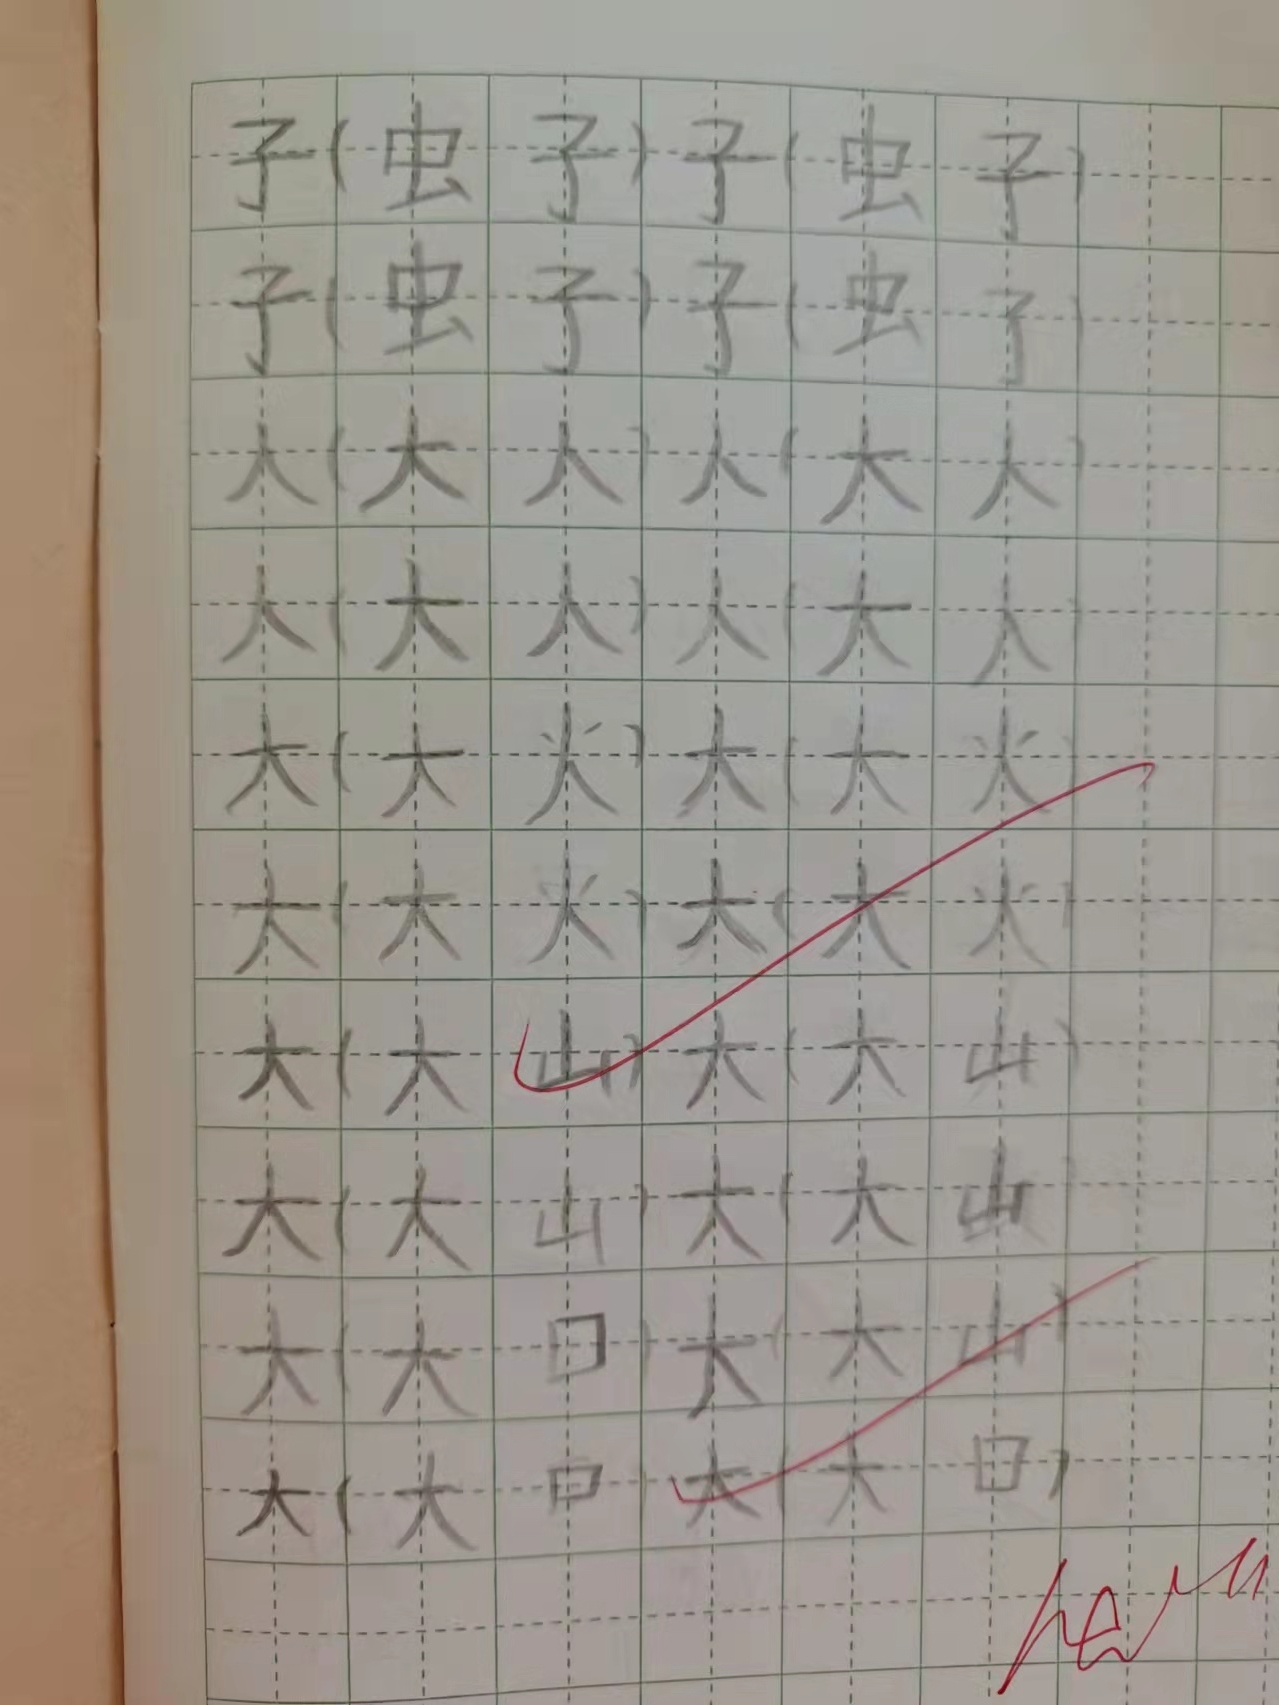 子(虫子)子(虫子)
子(虫子)子(虫子)
人(大人)人(大人)
人(大人)人(大人)
大(大火)大(大火)
大(大火)大(大火)
大(大山)大(大山)
大(大山)大(大山)
大(大日)大(大山)
大(大口 大(大日)